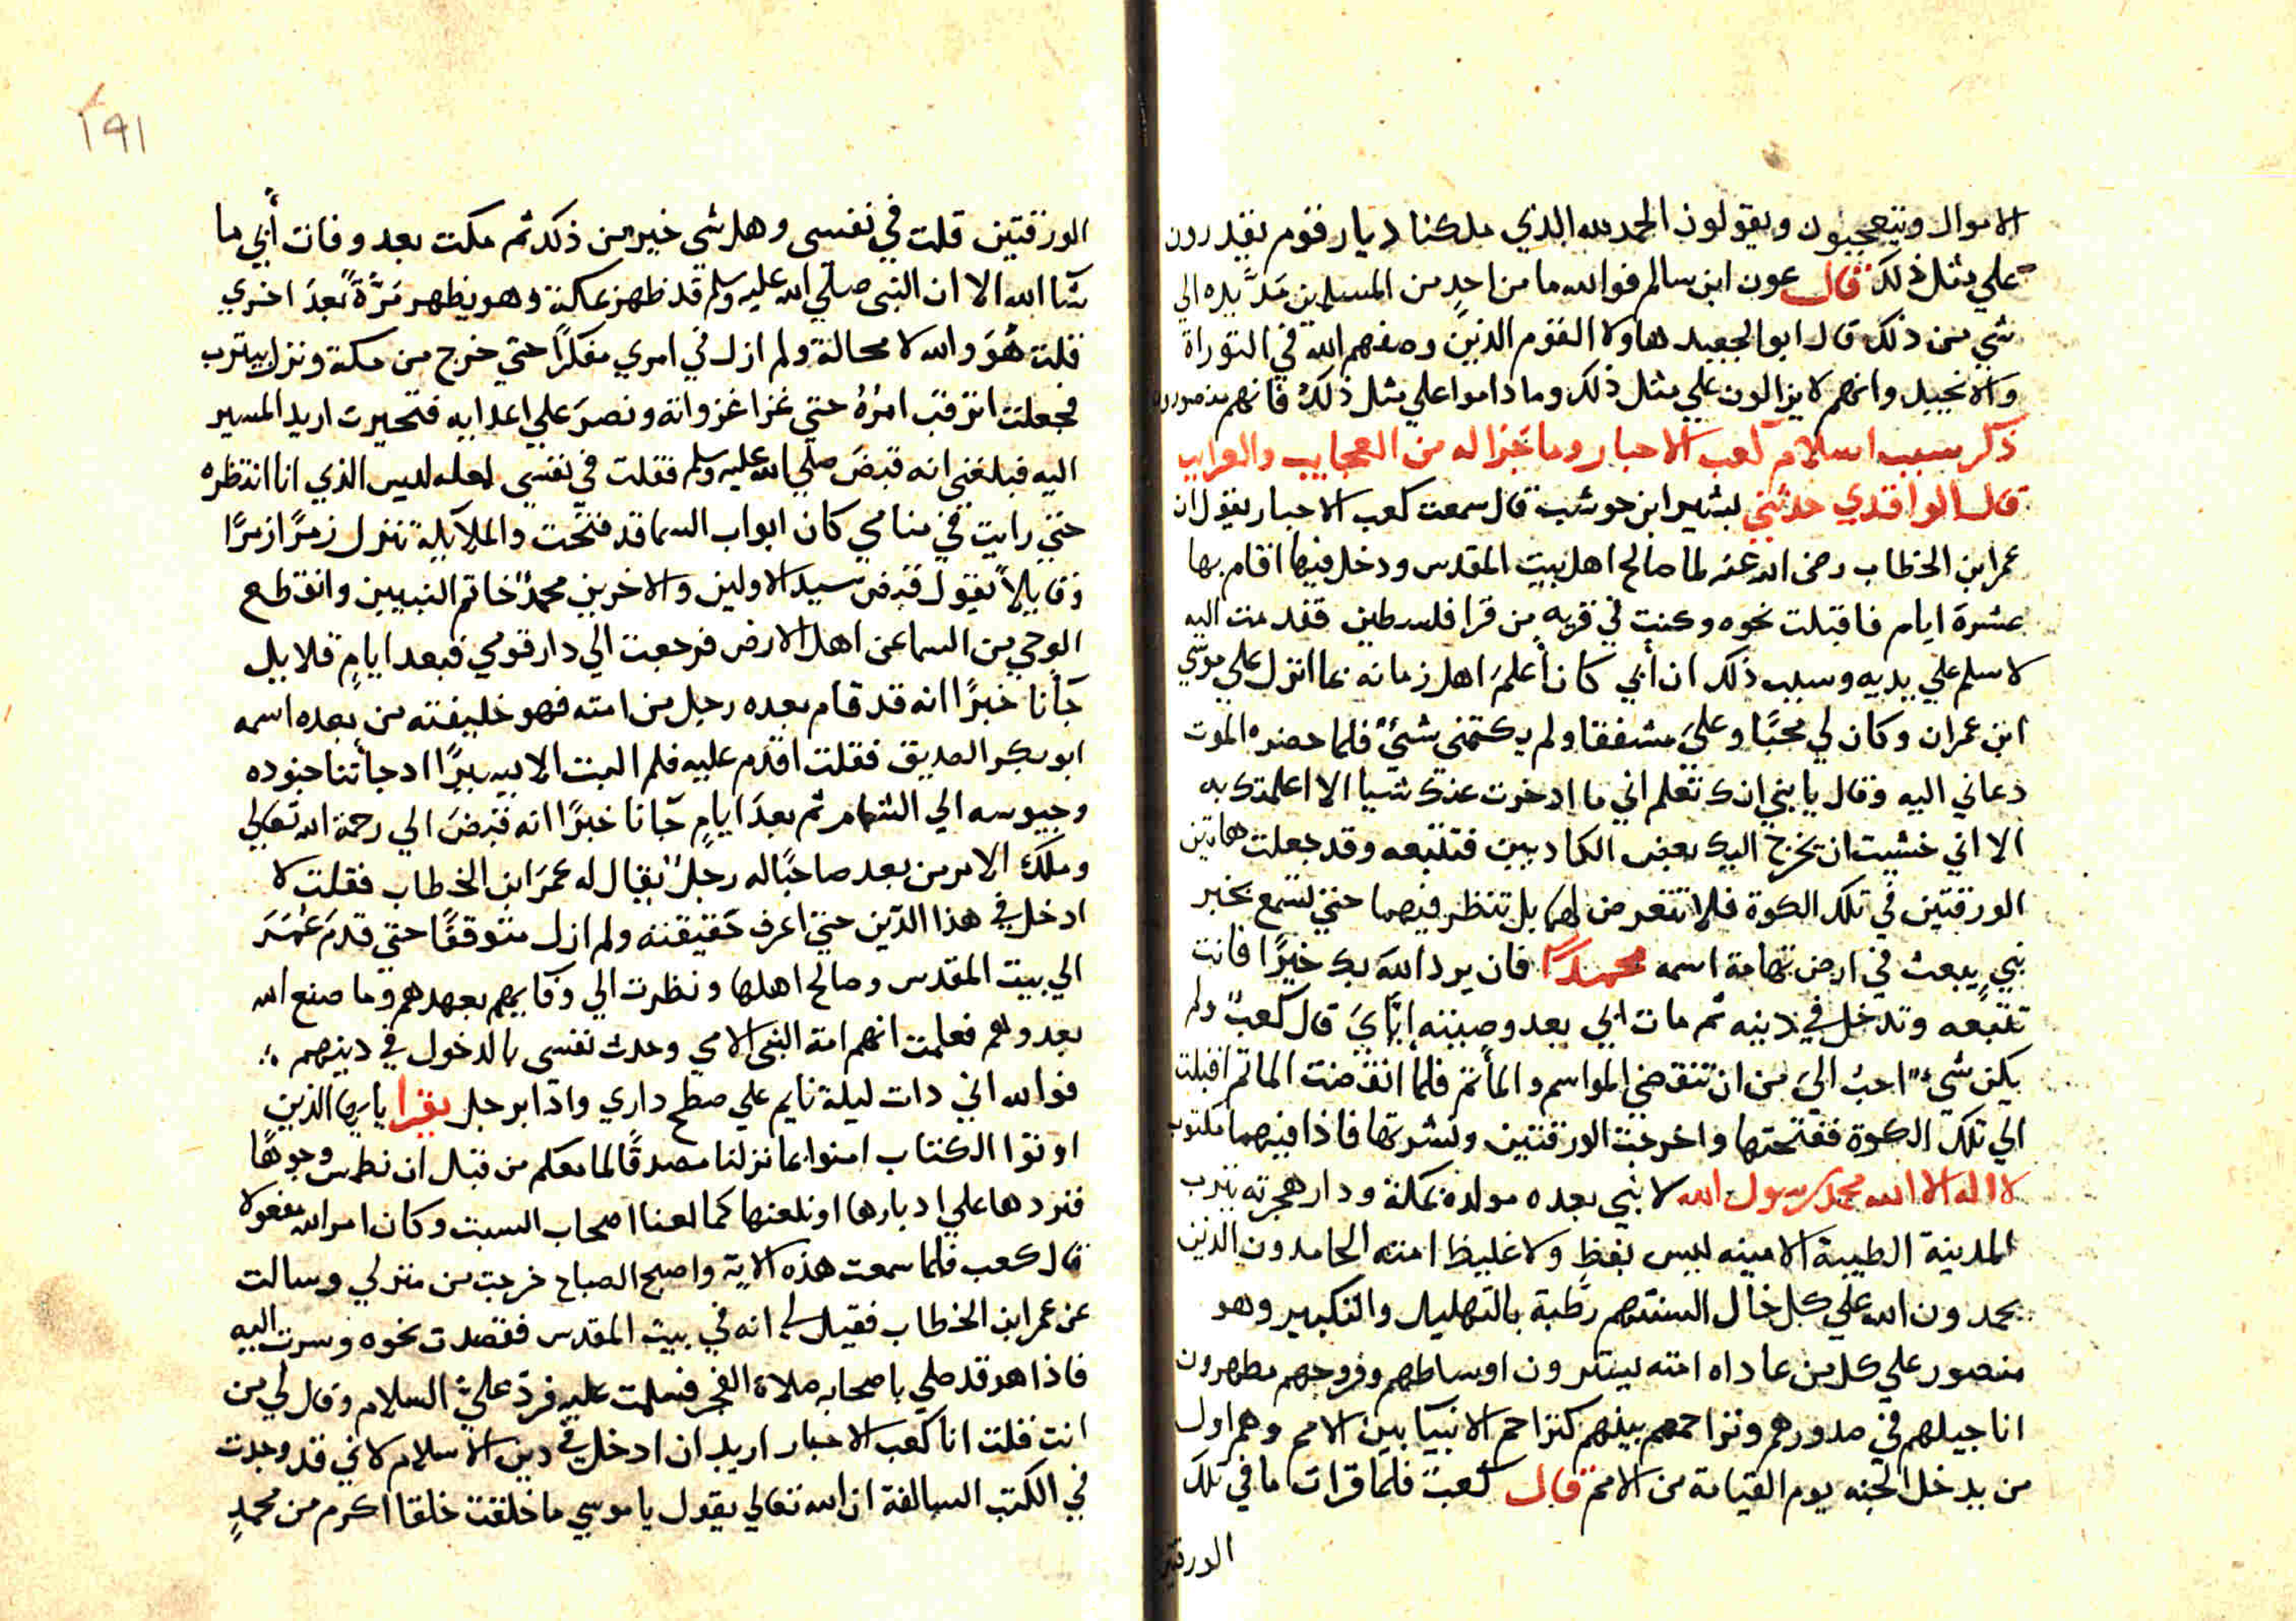 الاموال ويتعجبون ويقولون الحمد لله الذي ملكنا ديار قوم يقدرون
علي مثل ذلك قال عون ابن سالم فوالله ما من احدٍ من المسلمين مَدَّ يده الي
شي من ذلك قال ابو الجعيد هاولا القوم الذين وصفهم الله في التوراة
والانجيل وانهم لا يزالون علي مثل ذلك وما داموا علي مثل ذلك فانهم منصورون
ذكر سبب اسلام كعب الاحبار وما جرا له من العجايب والغرايب
قال الواقدي حدثني بشير ابن حوشب قال سمعت كعب الاحبار يقول ان
عمر ابن الخطاب رضي الله عنه لما صالح اهل بيت المقدس ودخل فيها اقام بها
عشرة ايام فاقبلت نحوه وكنت في قريه من قرا فلسطين فقدمت اليه
لاسلم علي يديه وسبب ذلك ان أبي كان أعلمَ اهل زمانه بما انزل علي موسي
ابن عمران وكان لي محبًا وعليَّ مشفقا ولم يكتمني شيئً فلما حضره الموت
دعاني اليه وقال يا بني انك تعلم اني ما ادخرت عنك شيا الا اعلمتك به
الا اني خشيت ان يخرج اليك بعض الكادبين فتتبعه وقد جعلت هاتين
الورقتين في تلك الكوة فلا تتعرض لهما بل تنظر فيهما حتي تسمع بخبر
نبيٍ يبعث في ارض تهامة اسمه محمدًا فان يرد الله بك خيرًا فانت
تتبعه وتدخل في دينه ثم مات ابي بعد وصيته إيَّايَ قال كعب ولم
يكن شيءٌ احبُ اليَ من ان تنقضي المواسم والمأتم فلما انقضت الماتم اقبلت
الي تلك الكوة ففتحتها واخرجت الورقتين ونشرتها فاذا فيهما مكتوب
لا اله الا الله محمد رسول الله لا نبي بعده مولده بمكة ودار هجرته يثرب
المدينة الطيبة الامينه ليس بفظٍ ولا غليظ امته الحامدون الذين
يحمدون الله علي كل حال السنتهم رطبة بالتهليل والتكبير وهو
منصور علي كل من عاداه امته يسترون اوساطهم وفروجهم مطهرون
اناجيلهم في صدورهم وتراحمهم بينهم كتراحم الانبيا بين الامم وهم اول
من يدخل الجنه يوم القيامة من الامم قال كعب فلما قرات ما في تلك
الورقتين
١٩١
الورقتين قلت في نفسي وهل شي خير من ذلك ثم مكت بعد وفات أبي ما
شآ الله الا ان النبي صلي الله عليه وسلم قد ظهر بمكة وهو يظهر مَرَّةً بعدَ اخري
قلت هُوَ والله لا محالة ولم ازل في امري مفكرًا حتي خرج من مكة ونزل بيترب
فجعلت اترقب امرُهُ حتي غزا غزواته ونصرَ علي اعدايه فتحيرت اريد المسير
اليه فبلغني انه قبضَ صلي الله عليه وسلم فقلت في نفسي لعله ليس الذي انا انتظره
حتي رايت في منامي كان ابواب السما قد فتحت والملايكة تنزل زمرًا زمرًا
وقايلاً يقول قبض سيد الاولين والاخرين محمدٌ خاتم النبيين وانقطع
الوحي من السما عن اهل الارض فرجعت الي دار قومي فبعد ايامٍ قلايل
جآنا خبرًا انه قد قام بعده رجل من امته فهو خليفته من بعده اسمه
ابو بكر الصديق فقلت اقدم عليه فلم البت الا يسيرًا اد جأتنا جنوده
وجيوسه الي الشام ثم بعدَ ايامٍ جآنا خبرًا انه قبضَ الي رحمة الله تعالي
وملك الامر من بعد صاحبًا له رجلٌ يقال له عمرَ ابن الخطاب فقلت لا
ادخل في هذا الدين حتي اعرف حقيقته ولم ازل متوقفًا حتي قدمَ عُمَرَ
الي بيت المقدس وصالح اهلها ونظرت الي وفايهم بعهدهم وما صنع الله
بعدوهم فعلمت انهم امة النبي الامي وحدث نفسي بالدخول في دينهم
فوالله اني دات ليلة نايم علي صطح داري واذا برجل يقرا يا ايها الذين
اوتوا الكتاب امنوا بما نزلنا مصدقًا لما معكم من قبل ان نطمس وجوهًا
فنردها علي ادبارها او نلعنها كما لعنا اصحاب السبت وكان امر الله مفعولا
قال كعب فلما سمعت هذه الاية واصبح الصباح خرجت من منزلي وسالت
عن عمر ابن الخطاب فقيل لي انه في بيت المقدس فقصدت نحوه وسرت اليه
فاذا هو قد صلي باصحابه صلاة الفجر فسلمت عليه فردَّ عليَّ السلام وقال لي من
انت فقلت انا كعب الاحبار اريد ان ادخل في دين الاسلام لاني قد وجدت
في الكتب السالفة ان الله تعالي يقول يا موسي ما خلقت خلقا اكرم من محمدٍ